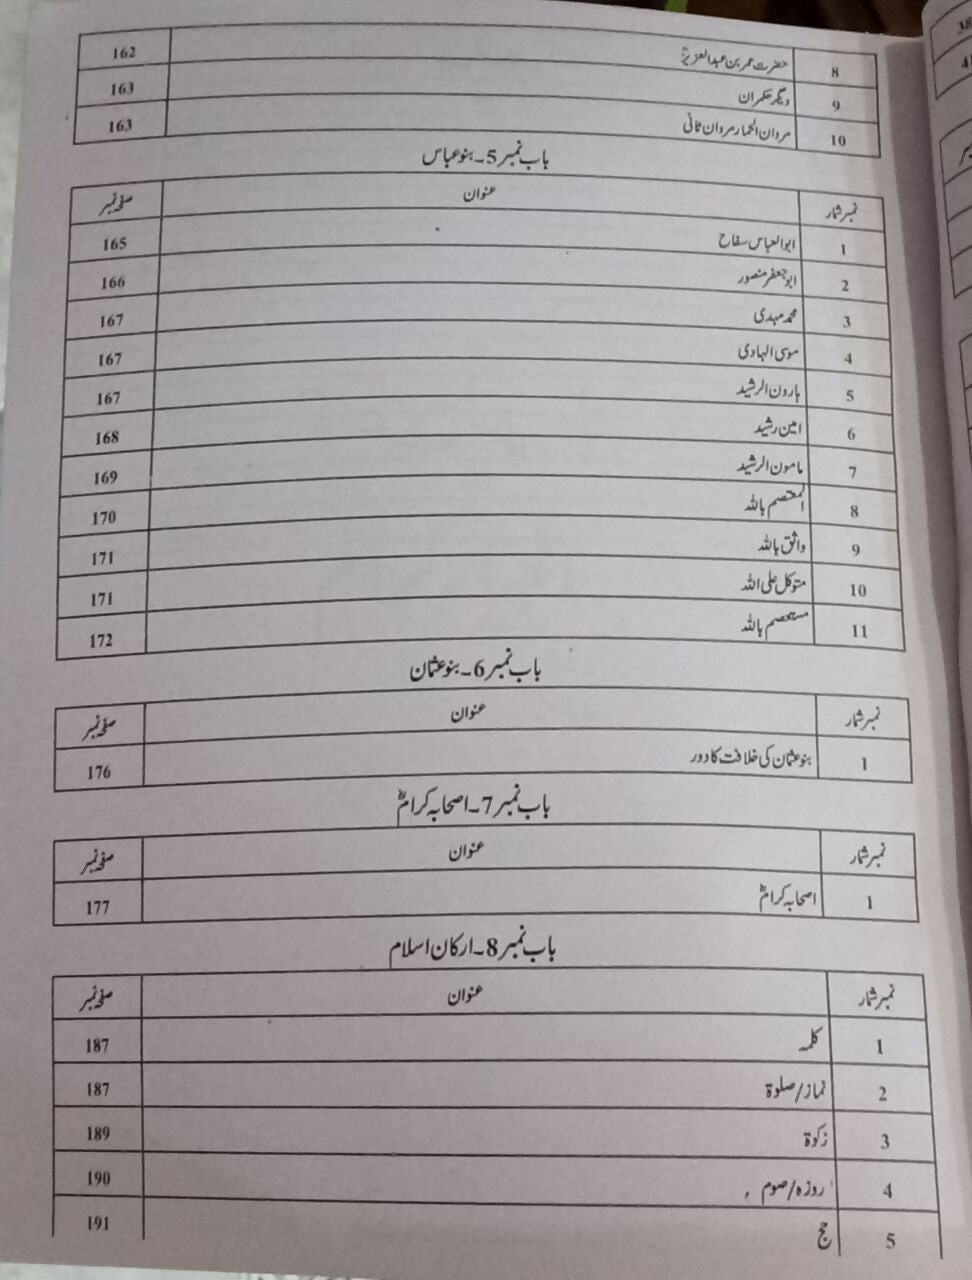 8 حضرت عمر بن عبدالعزیزؒ 162
9 دیگر حکمران 163
10 مروان الحمار مروان ثانی 163
باب نمبر 5۔ بنو عباس
نمبر شمار عنوان صفحہ نمبر
1 ابوالعباس سفاح 165
2 ابو جعفر منصور 166
3 محمد مہدی 167
4 موسی الہادی 167
5 ہارون الرشید 167
6 امین رشید 168
7 مامون الرشید 169
8 المعتصم باللہ 170
9 واثق باللہ 171
10 متوکل علی اللہ 171
11 مستعصم باللہ 172
باب نمبر 6۔ بنو عثمان
نمبر شمار عنوان صفحہ نمبر
1 بنو عثمان کی خلافت کا دور 176
باب نمبر 7۔ اصحابہ کرامؓ
نمبر شمار عنوان صفحہ نمبر
1 اصحابہ کرامؓ 177
باب نمبر 8۔ ارکان اسلام
نمبر شمار عنوان صفحہ نمبر
1 کلمہ 187
2 نماز/صلوۃ 187
3 زکوۃ 189
4 روزہ/صوم 190
5 حج 191